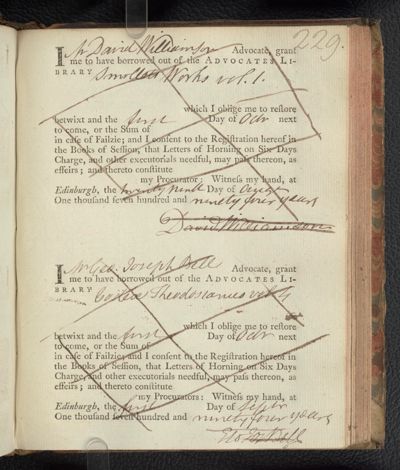 229.
I Mr David Williamson Advocate, grant
me to have borrowed out of the ADVOCATES LI-
BRARY Smollets Works vol. 1.
which I oblige me to restore
betwixt and the first Day of Octr next
to come, or the Sum of
in case of Failzie; and I consent to the Registration hereof in
the Books of Session, that Letters of Horning on Six Days
Charge, and other executorials needful, may pass thereon, as
effeirs; and thereto constitute
my Procurator: Witness my hand, at
Edinburgh, the twenty nine Day of August
One thousand seven hundred and ninety four years
David Williamson
I Mr Geo. Joseph Bell Advocate, grant
me to have borrowed out of the ADVOCATES LI-
BRARY Codex Theodosianus vol
which I oblige me to restore
betwixt and the first Day of Octr next
to come, or the Sum of
in case of Failzie; and I consent to the Registration hereof in
the Books of Session, that Letters of Horning on Six Days
Charge, and other executorials needful, may pass thereon, as
effeirs; and thereto constitute
my Procurators: Witness my hand, at
Edinburgh, the first Day of Septr
One thousand seven hundred and ninety four years
Geo Jos Bell